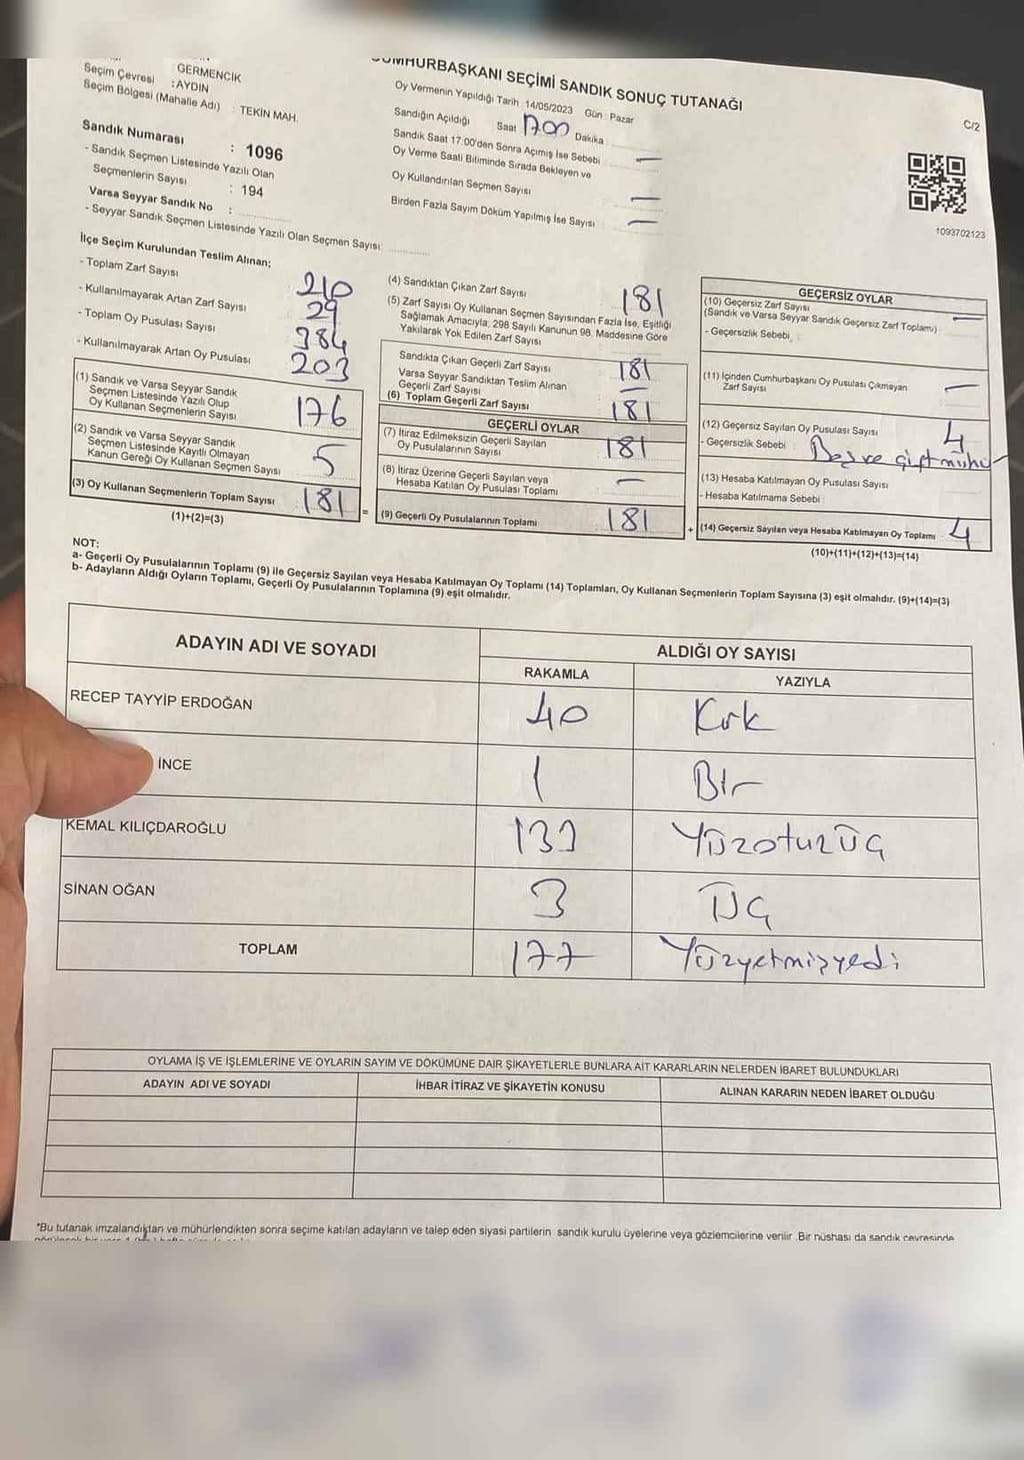 GERMENCİK
Seçim Çevresi : AYDIN
Seçim Bölgesi (Mahalle Adı) : TEKİN MAH.
Sandık Numarası : 1096
- Sandık Seçmen Listesinde Yazılı Olan
Seçmenlerin Sayısı : 194
Varsa Seyyar Sandık No :
- Seyyar Sandık Seçmen Listesinde Yazılı Olan Seçmen Sayısı:
CUMHURBAŞKANI SEÇİMİ SANDIK SONUÇ TUTANAĞI
Oy Vermenin Yapıldığı Tarih 14/05/2023 Gün : Pazar
Sandığın Açıldığı Saat 17.00 Dakika
Sandık Saat 17:00'den Sonra Açımış İse Sebebi —
Oy Verme Saati Bitiminde Sırada Bekleyen ve
Oy Kullandırılan Seçmen Sayısı —
Birden Fazla Sayım Döküm Yapılmış İse Sayısı —
C/2
1093702123
İlçe Seçim Kurulundan Teslim Alınan;
- Toplam Zarf Sayısı 210
- Kullanılmayarak Artan Zarf Sayısı 29
- Toplam Oy Pusulası Sayısı 384
- Kullanılmayarak Artan Oy Pusulası 203
(1) Sandık ve Varsa Seyyar Sandık
Seçmen Listesinde Yazılı Olup
Oy Kullanan Seçmenlerin Sayısı 176
(2) Sandık ve Varsa Seyyar Sandık
Seçmen Listesinde Kayıtlı Olmayan
Kanun Gereği Oy Kullanan Seçmen Sayısı 5
(3) Oy Kullanan Seçmenlerin Toplam Sayısı 181 =
(1)+(2)=(3)
(4) Sandıktan Çıkan Zarf Sayısı 181
(5) Zarf Sayısı Oy Kullanan Seçmen Sayısından Fazla İse, Eşitliği
Sağlamak Amacıyla, 298 Sayılı Kanunun 98. Maddesine Göre
Yakılarak Yok Edilen Zarf Sayısı
Sandıkta Çıkan Geçerli Zarf Sayısı 181
Varsa Seyyar Sandıktan Teslim Alınan
Geçerli Zarf Sayısı —
(6) Toplam Geçerli Zarf Sayısı 181
GEÇERLİ OYLAR
(7) İtiraz Edilmeksizin Geçerli Sayılan
Oy Pusulalarının Sayısı 181
(8) İtiraz Üzerine Geçerli Sayılan veya
Hesaba Katılan Oy Pusulası Toplamı —
(9) Geçerli Oy Pusulalarının Toplamı 181 +
GEÇERSİZ OYLAR
(10) Geçersiz Zarf Sayısı
(Sandık ve Varsa Seyyar Sandık Geçersiz Zarf Toplamı) —
- Geçersizlik Sebebi
(11) İçinden Cumhurbaşkanı Oy Pusulası Çıkmayan
Zarf Sayısı —
(12) Geçersiz Sayılan Oy Pusulası Sayısı 4
- Geçersizlik Sebebi : Boş ve çift mühür
(13) Hesaba Katılmayan Oy Pusulası Sayısı
- Hesaba Katılmama Sebebi
(14) Geçersiz Sayılan veya Hesaba Katılmayan Oy Toplamı 4
(10)+(11)+(12)+(13)=(14)
NOT:
a- Geçerli Oy Pusulalarının Toplamı (9) ile Geçersiz Sayılan veya Hesaba Katılmayan Oy Toplamı (14) Toplamları, Oy Kullanan Seçmenlerin Toplam Sayısına (3) eşit olmalıdır. (9)+(14)=(3)
b- Adayların Aldığı Oyların Toplamı, Geçerli Oy Pusulalarının Toplamına (9) eşit olmalıdır.
ADAYIN ADI VE SOYADI ALDIĞI OY SAYISI
RAKAMLA YAZIYLA
RECEP TAYYİP ERDOĞAN 40 Kırk
İNCE 1 Bir
KEMAL KILIÇDAROĞLU 133 Yüzotuzüç
SİNAN OĞAN 3 Üç
TOPLAM 177 Yüzyetmişyedi
OYLAMA İŞ VE İŞLEMLERİNE VE OYLARIN SAYIM VE DÖKÜMÜNE DAİR ŞİKAYETLERLE BUNLARA AİT KARARLARIN NELERDEN İBARET BULUNDUKLARI
ADAYIN ADI VE SOYADI İHBAR İTİRAZ VE ŞİKAYETİN KONUSU ALINAN KARARIN NEDEN İBARET OLDUĞU
*Bu tutanak imzalandıktan ve mühürlendikten sonra seçime katılan adayların ve talep eden siyasi partilerin sandık kurulu üyelerine veya gözlemcilerine verilir. Bir nüshası da sandık çevresinde